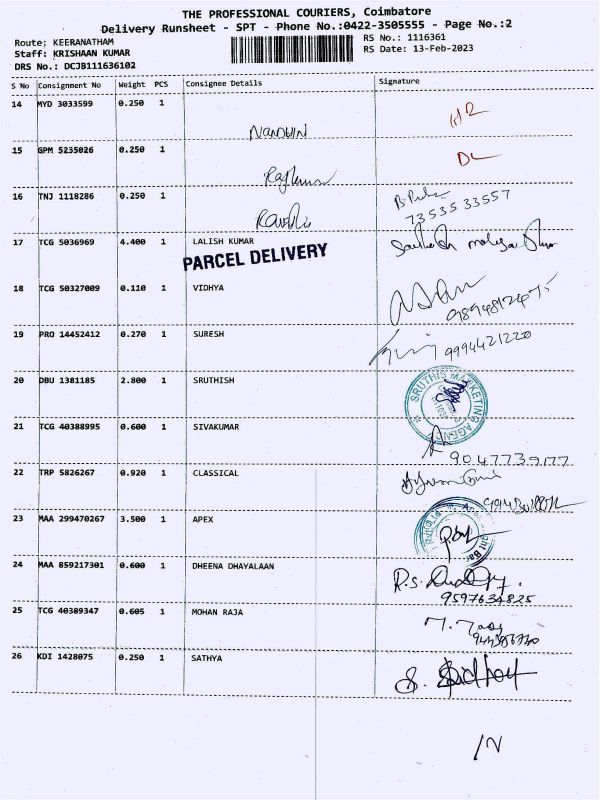 THE PROFESSIONAL COURIERS, Coimbatore
Delivery Runsheet - SPT - Phone No.:0422-3505555 - Page No.:2
Route: KEERANATHAM
RS No.: 1116361
Staff: KRISHAAN KUMAR
RS Date: 13-Feb-2023
DRS No.: DCJB111636102
S No Consignment No Weight PCS Consignee Details Signature
14 MYD 3033599 0.250 1
15 GPM 5235026 0.250 1
16 TNJ 1118286 0.250 1
73535 33557
17 TCG 5036969 4.400 1 LALISH KUMAR
PARCEL DELIVERY
18 TCG 50327009 0.110 1 VIDHYA
19 PRO 14452412 0.270 1 SURESH
9994421220
20 DBU 1381185 2.800 1 SRUTHISH
SRUTHIS MARKETING AGENCY
21 TCG 40388995 0.600 1 SIVAKUMAR
9047739177
22 TRP 5826267 0.920 1 CLASSICAL
23 MAA 299470267 3.500 1 APEX
24 MAA 859217301 0.600 1 DHEENA DHAYALAAN
R.S.
9597634825
25 TCG 40389347 0.605 1 MOHAN RAJA
26 KDI 1428075 0.250 1 SATHYA